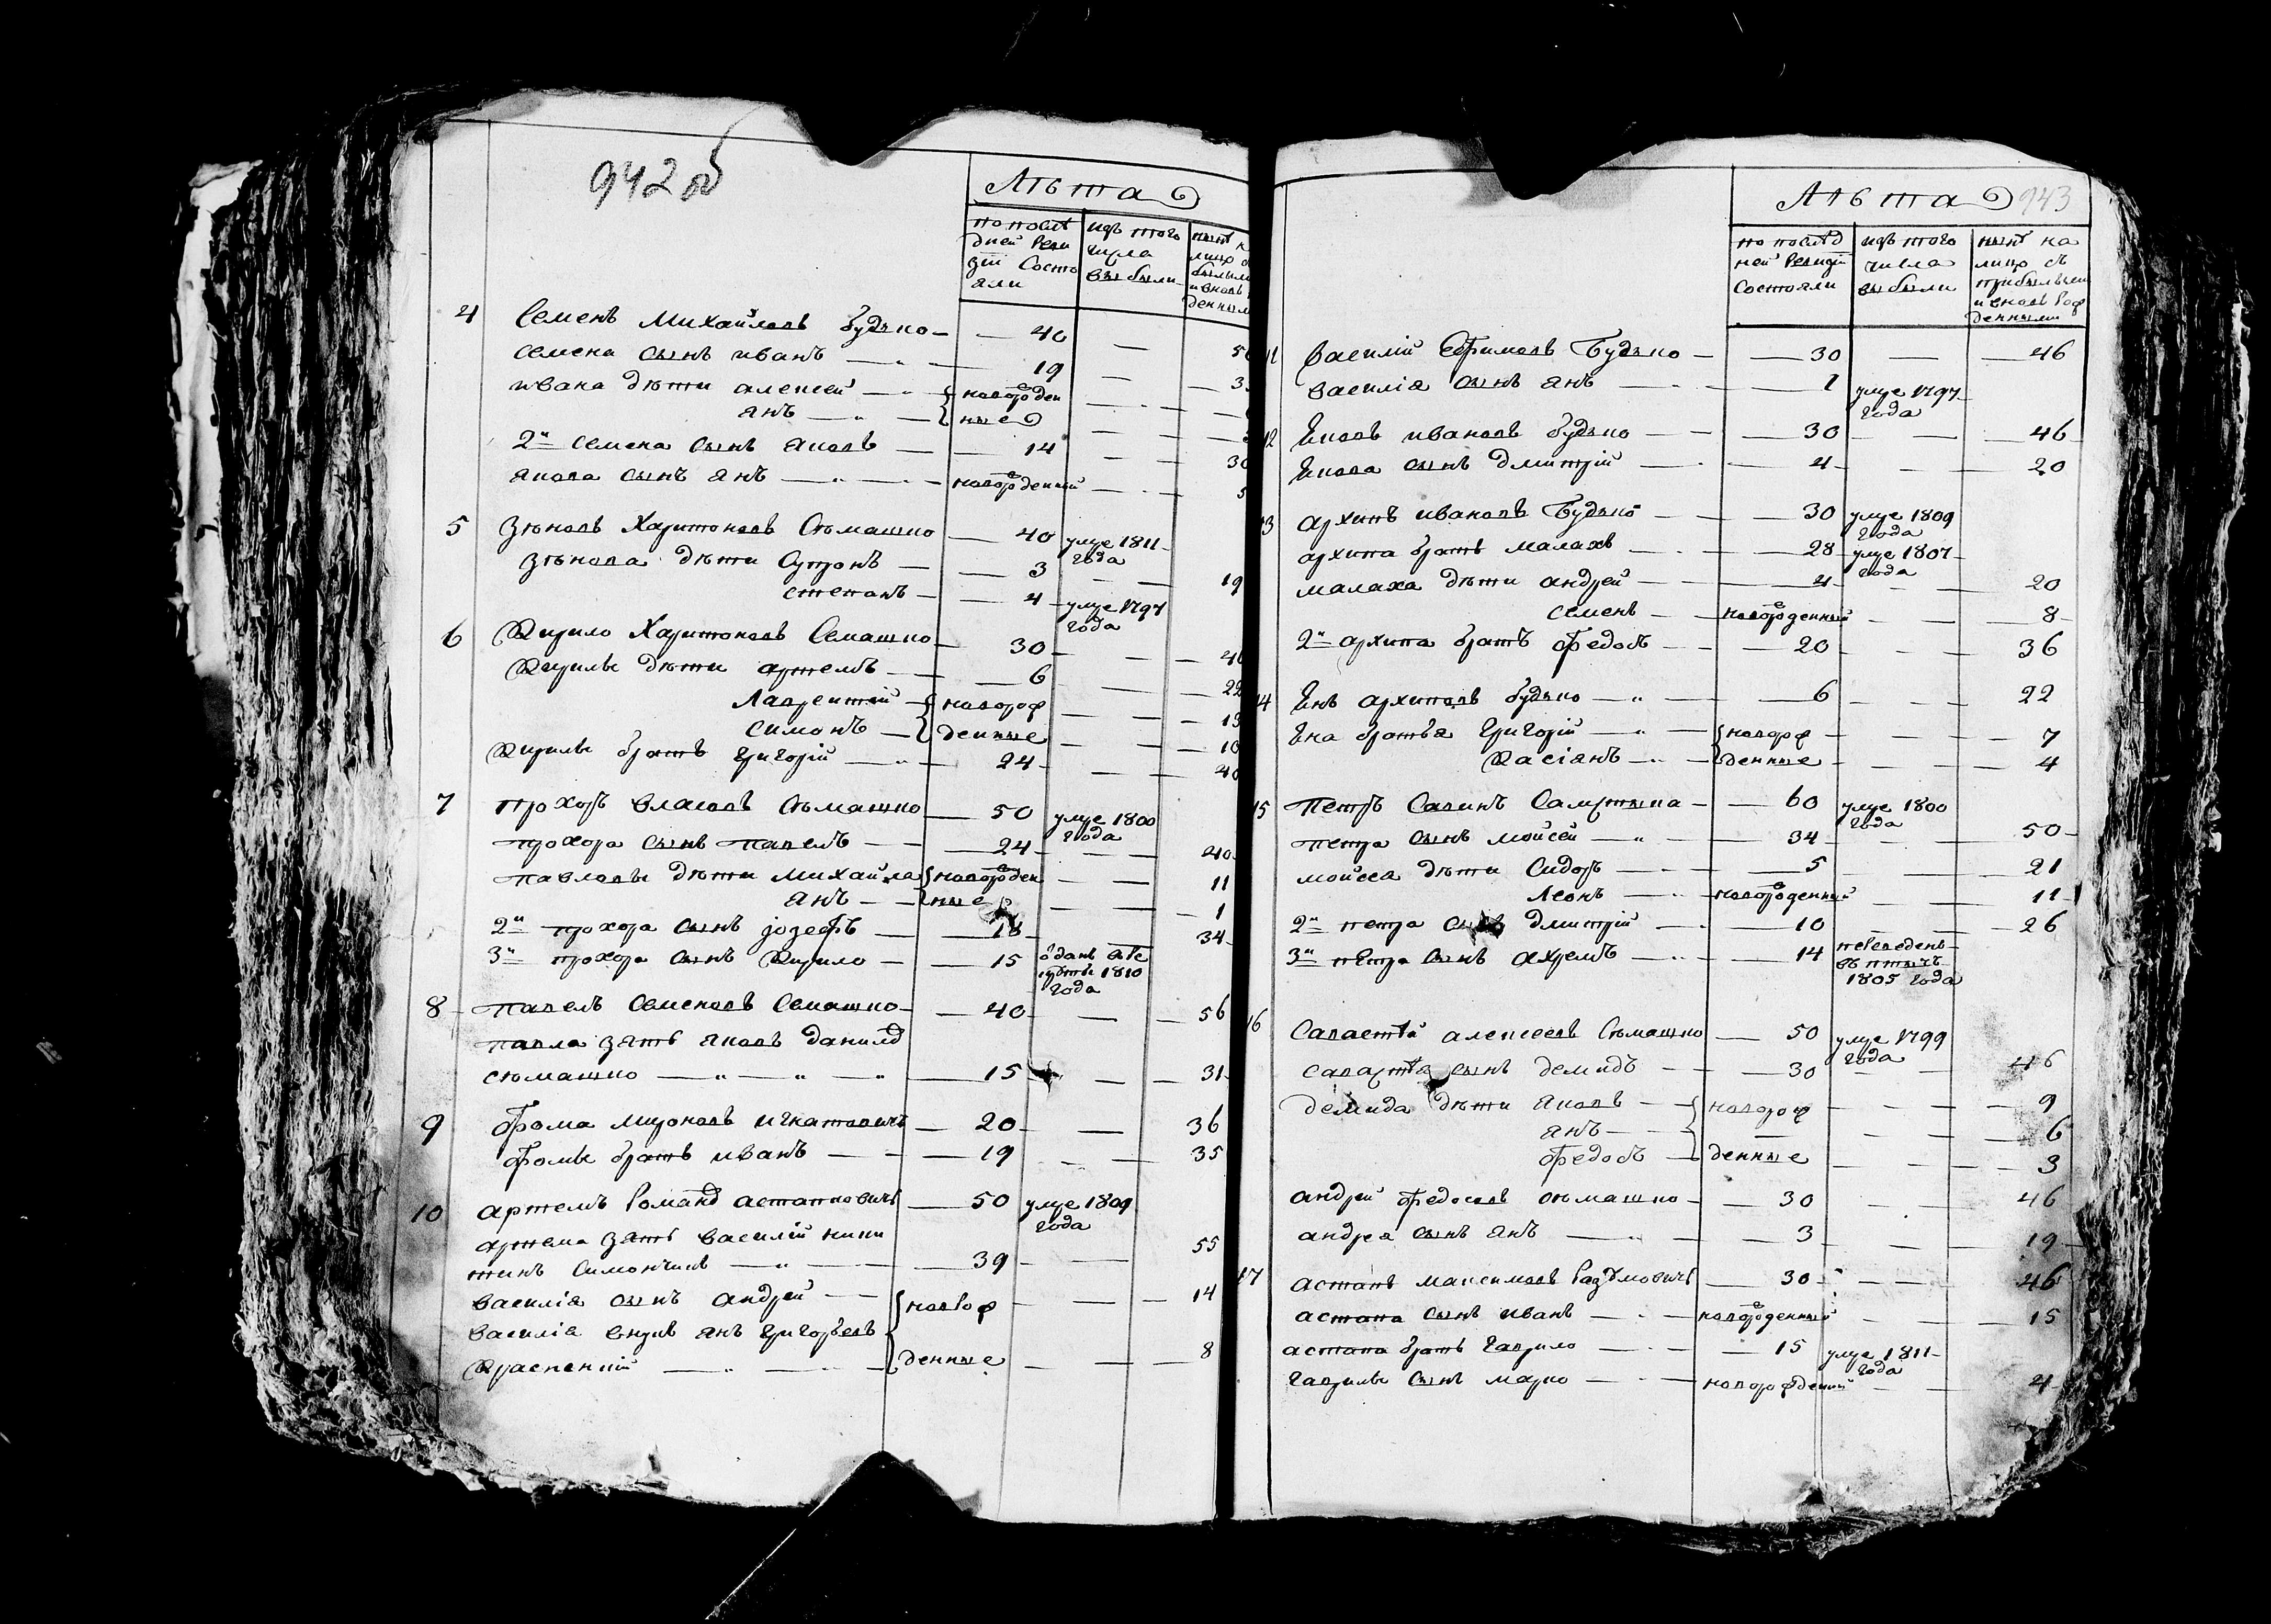 942 об
Лѣта
по послѣ
дней Реви
зіи Состо
яли
изъ того
числа
выбыли
нынѣ н
лицо с
былыми
и вновь
денными
4 Семенъ Михайловъ Будько 40 — 5
Семена сынъ иванъ 19 — 3
ивана дѣти алексей новорожден
янъ ные
2й Семена сынъ яковъ 14 — 30
якова сынъ янъ новорожденный — 5
5 Зѣновъ Харитоновъ Сѣмашко 40 умре 1811 года
Зѣнова дѣти Супронъ 3 — 19
степанъ 4 умре 1797 года
6 Кирило Харитоновъ Семашко 30 — 46
Кирилы дѣти артемъ 6 — 22
Лаврентей новорож — 13
симонъ денные — 10
Кирилы братъ григорій 24 — 40
7 прохоръ власовъ Сѣмашко 50 умре 1800 года
прохора сынъ павелъ 24 — 40
павловы дѣти михайла новорожден — 11
янъ ные — 1
2й прохора сынъ іозефъ 18 — 34
3й прохора сынъ Кирило 15 ѿданъ в ре
круты 1810
года
8 павелъ Семеновъ Семашко 40 — 56
павла зять яковъ данилов
сѣмашко 15 — 31
9 Фома мироновъ игнатовичъ 20 — 36
Фомы братъ иванъ 19 — 35
10 артемъ Романов астапковичъ 50 умре 1809 года
артема зять василій ники
тинъ Симончикъ 39 — 55
василія сынъ андрей новорож — 14
василія внукъ янъ григорьевъ
Краскевичъ денные — 8
943
Лѣта
по послѣд
ней Ревизіи
Состояли
изъ того
числа
выбыли
нынѣ на
лицо съ
прибылыми
и вновь Рож
денными
11 василій Ефимовъ Будько 30 — 46
василія сынъ янъ 1 умре 1797 года
12 Яковъ ивановъ будько 30 — 46
Якова сынъ дмитрій 4 — 20
13 архипъ ивановъ Будько 30 умре 1809 года
архипа братъ малахъ 28 умре 1807 года
малаха дѣти андрей 4 — 20
семенъ новорожденный — 8
2й архипа братъ федосъ 20 — 36
14 Янъ архиповъ будько 6 — 22
Яна братья григорій новорож — 7
Касіянъ денные — 4
15 Петръ Савинъ Самустыка 60 умре 1800 года
петра сынъ мойсей 34 — 50
мойсея дѣти Сидоръ 5 — 21
Леонъ новорожденный — 11
2й петра сынъ дмитрій 10 — 26
3й петра сынъ ахремъ 14 переведенъ
въ птичъ
1805 года
16 Савастѣй алексеевъ Сѣмашко 50 умре 1799 года
савастѣя сынъ демидъ 30 — 46
демида дѣти яковъ новорож — 9
янъ — 6
федосъ денные — 3
андрей федосовъ сѣмашко 30 — 46
андрея сынъ янъ 3 — 19
17 астапъ максимовъ Разумовичъ 30 — 46
астапа сынъ иванъ новорожденный — 15
астапа братъ гаврило 15 умре 1811 года
гаврилы сынъ марко новорожденный — 4